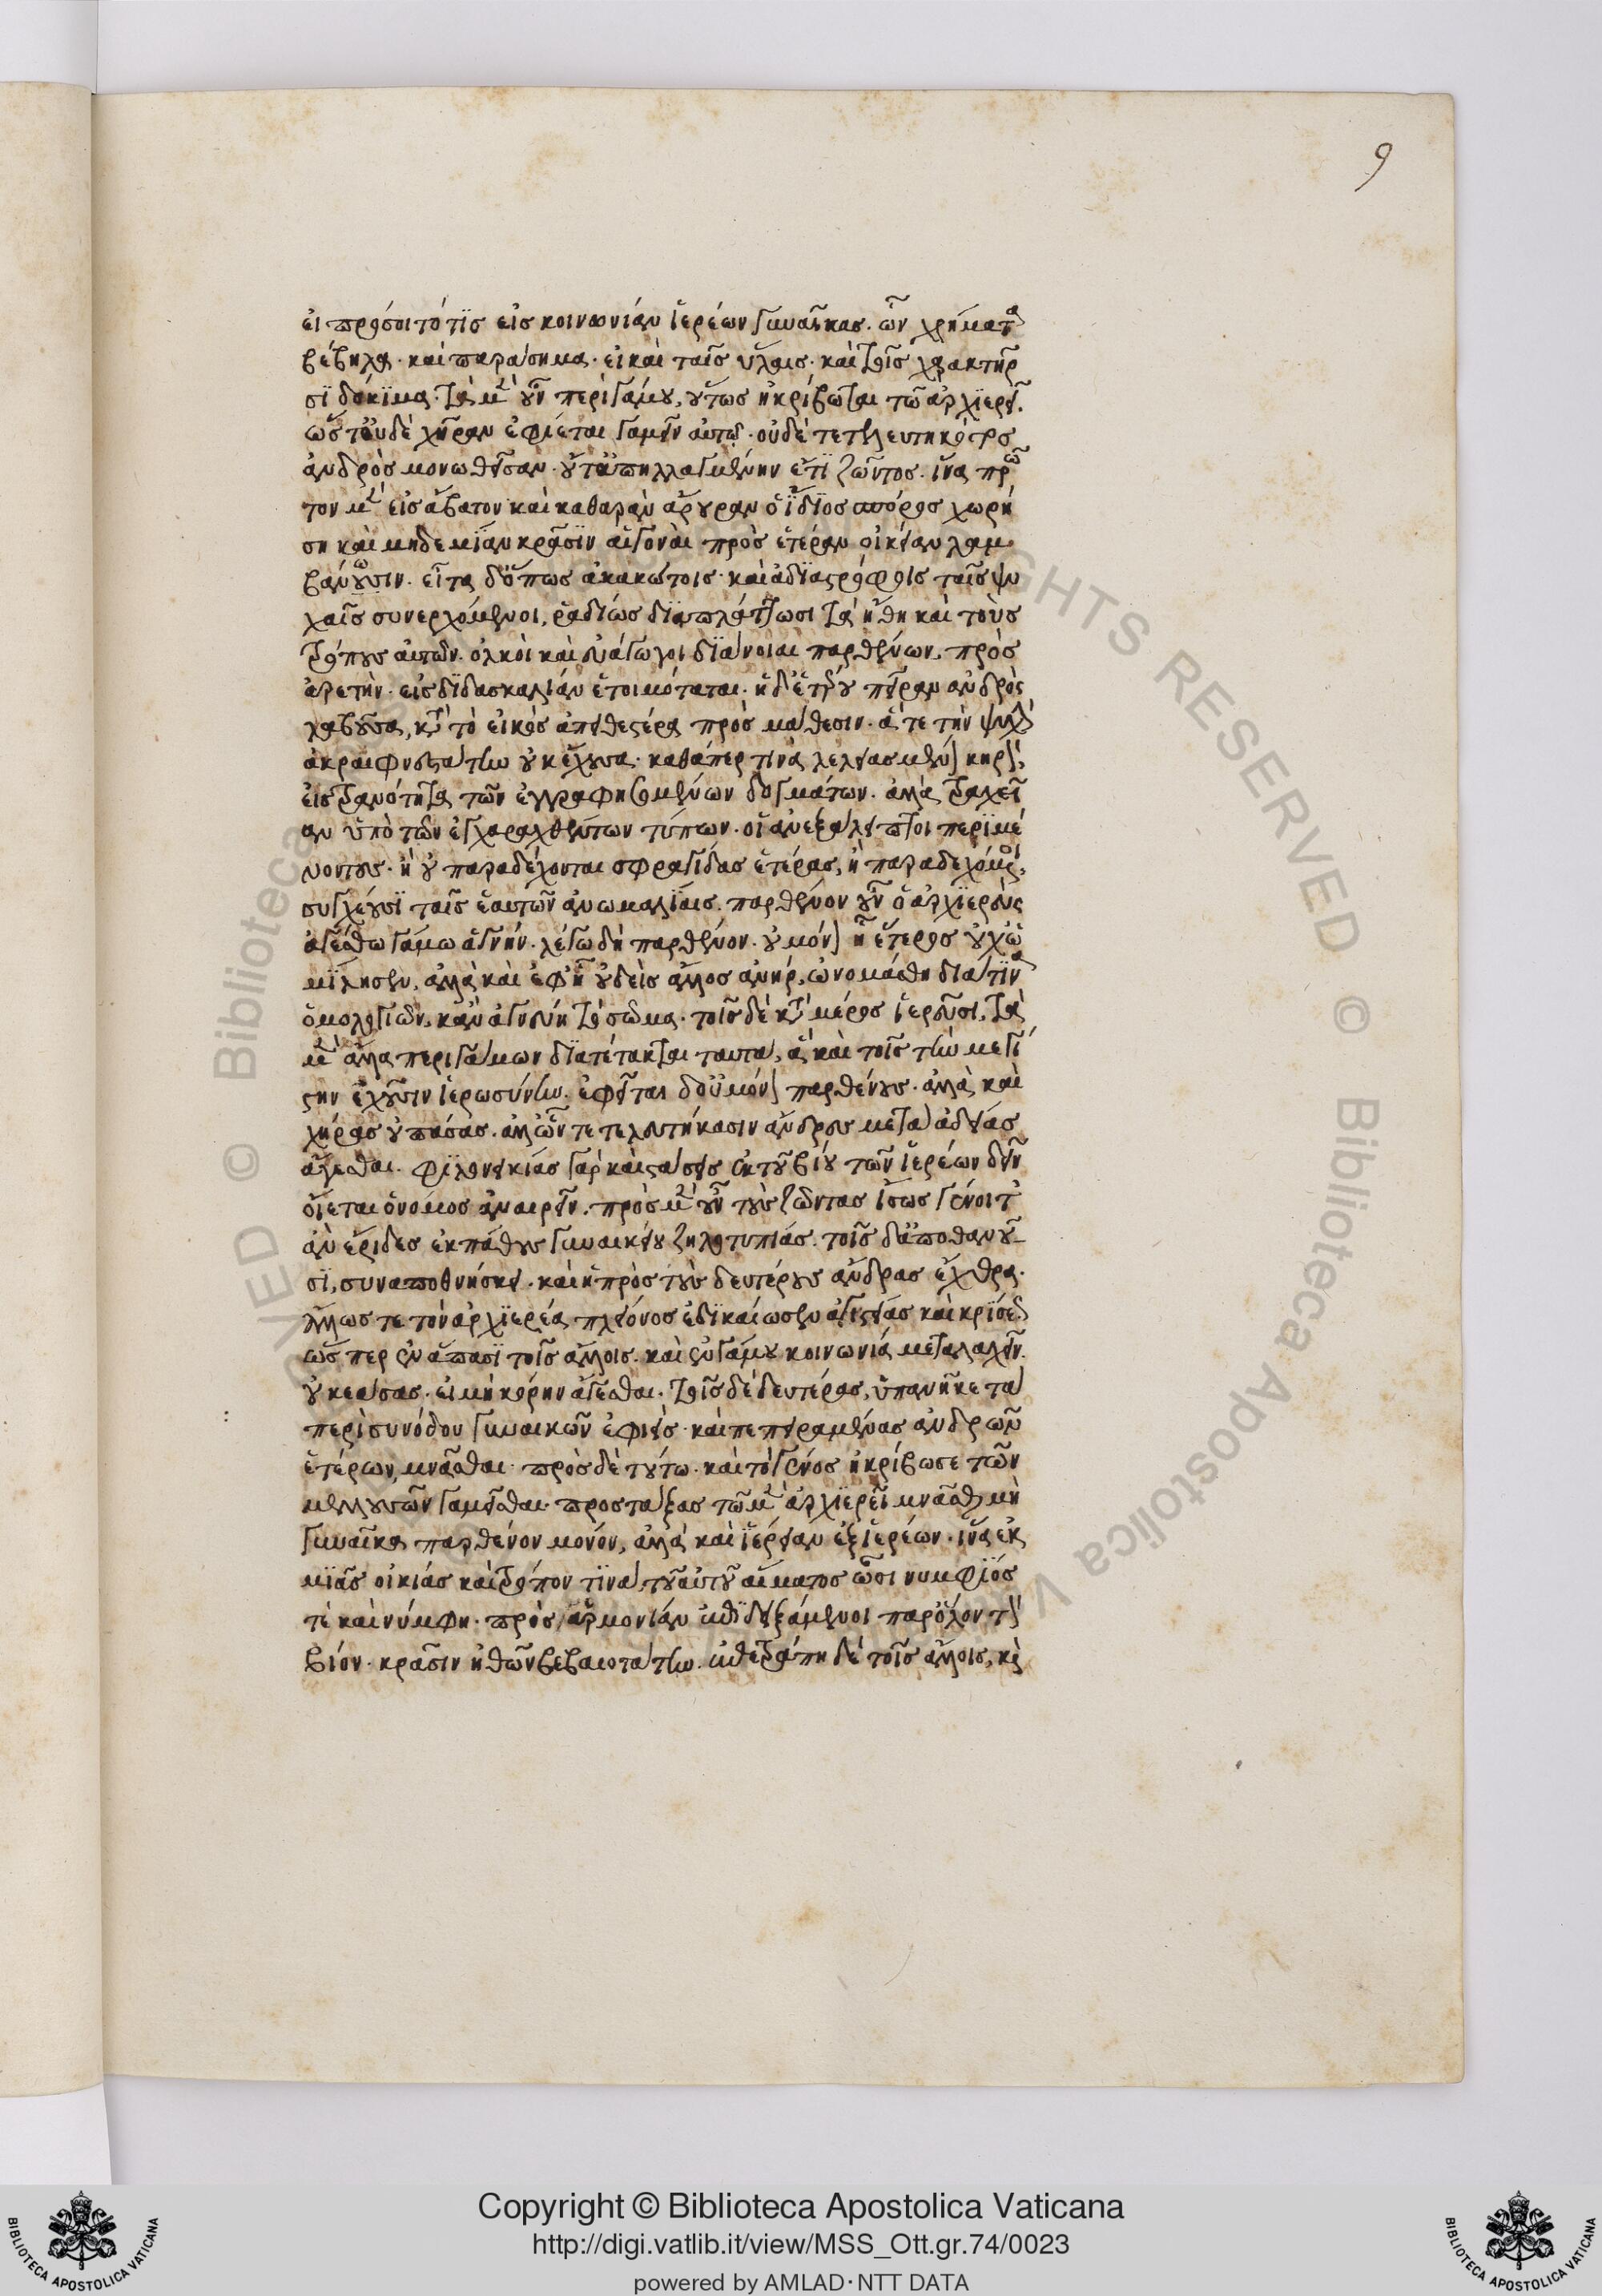 9
εἰ προσοιτό τϊς εἰς κοινωνίαν ἱερέων γυναῖκας. ὧν χρήματα
βέβηλα· καὶ παράσημα· εἰ καὶ ταῖς ὕλαις· καὶ τοῖς χαρακτῆρ
σϊ δόκϊμα. τὰ μὲν οὖν περὶ γάμου, οὕτως ἠκρίβωται τῶ ἀρχϊερεῖ.
ὡς τ' οὐδὲ χῆραν ἐφίεται γαμεῖν αὐτῶ. οὐδὲ τετελευτηκότος
ἀνδρὸς μονωθεῖσαν. οὔτ' ἀπηλλαγμένην ἔτϊ ζῶντος. ἵνα πρῶ
τον μὲν εἰς ἄβατον καὶ καθαρὰν ἄρουραν ὁ ἴδϊος σπόρος χωρή
ση καὶ μηδεμϊαν κρᾶσϊν αἱ γοναὶ πρὸς ἑτέραν οἰκείαν λαμ
βάνωσιν. εἶτα δ' ὅπως ἀκακώτοις· καὶ ἀδϊαστρόφοις ταῖς ψυ
χαῖς συνερχόμενοι, ῥαδίως δϊαπλάττωσι τὰ ἤθη καὶ τοὺς
τρόπους αὐτῶν. ὁλκοὶ καὶ εὐάγωγοι δϊάνοιαι παρθένων, πρὸς
ἀρετὴν. εἰς δϊδασκαλίαν ἑτοιμόταται. ἡ δ' ἑτέρου πεῖραν ἀνδρὸς
λαβοῦσα, κατὰ τὸ εἰκὸς ἀπειθεστέρα πρὸς μάθεσιν. ἅτε τὴν ψυχὴν
ἀκραιφνεστάτην οὐκ ἔχουσα. καθάπερ τινὰ λελειασμένον κηρὸν,
εἰς τρανότητα τῶν ἐγγραφησομένων δογμάτων. ἀλλὰ τραχεῖ
αν ὑπὸ τῶν ἐγχαραχθέντων τύπων. οἳ ἀνεξάλειπτοι περϊμέ
νοντες. ἢ οὐ παραδέχονται σφραγῖδας ἑτέρας, ἢ παραδεχόμενοι,
συγχέουσϊ ταῖς ἑαυτῶν ἀνωμαλίαις. παρθένον οὖν ὁ ἀρχϊερεὺς
ἀγέσθω γάμω ἁγνὴν. λέγω δὴ παρθένον. οὐ μόνον ᾗ ἕτερος οὐχ ὡ
μίλησεν, ἀλλὰ καὶ ἐφ' ᾗ οὐδεὶς ἄλλος ἀνὴρ, ὠνομάσθη διὰ τϊνῶν
ὁμολογιῶν, κἂν ἁγνεύη τὸ σῶμα. τοῖς δὲ κατὰ μέρος ἱερεῦσι, τὰ
μὲν ἄλλα περὶ γάμων δϊατέτακται ταυτὰ, ἃ καὶ τοῖς τὴν μεγί
στην ἔχουσιν ἱερωσύνην. ἐφεῖται δ' οὐ μόνον παρθένους. ἀλλὰ καὶ
χήρας οὐ πάσας. ἀλλ' ὧν τετελευτήκασιν ἄνδρες μετὰ ἀδείας
ἄγεσθαι. φϊλονεικίας γὰρ καὶ στάσεις ἐκ τοῦ βίου τῶν ἱερέων δεῖν
οἴεται ὁ νόμος ἀναιρεῖν. πρὸς μὲν οὖν τοὺς ζῶντας ἴσως γένοιντ'
ἂν ἔριδες ἐκ πάθους γυναικείου ζηλοτυπίας. τοῖς δ' ἀποθανοῦ
σϊ, συναποθνήσκει. καὶ ἡ πρὸς τοὺς δευτέρους ἄνδρας ἔχθρα.
ἄλλως τε τὸν ἀρχϊερέα πλείονος ἐδϊκαίωσεν ἁγιστείας καὶ κρίσεως
ὥσπερ ἐν ἅπασϊ τοῖς ἄλλοις. καὶ ἐν γάμου κοινωνία μεταλαχεῖν.
οὐκ ἐάσας. εἰ μὴ κόρην ἄγεσθαι. τοῖς δὲ δευτέροις, ὑπανῆκε τὰ
περὶ συνόδου γυναικῶν ἐφιεὶς· καὶ πεπειραμένας ἀνδρῶν
ἑτέρων, μνᾶσθαι. πρὸς δὲ τούτω. καὶ τὸ γένος ἠκρίβωσε τῶν
μελλουσῶν γαμεῖσθαι προστάξας τῶ μὲν ἀρχϊερεῖ μνᾶσθαι μὴ
γυναῖκα παρθένον μόνον, ἀλλὰ καὶ ἱέρειαν ἐξ ἱερέων. ἵνα ἐκ
μϊᾶς οἰκίας καὶ τρόπον τϊνὰ, τοῦ αὐτοῦ αἵματος ὦσι νυμφίος
τὲ καὶ νύμφη. πρὸς ἁρμονίαν ἐπιδειξάμενοι παρ' ὅλον τὸν
βίον. κρᾶσιν ἠθῶν βεβαιοτάτην. ἐπετράπη δὲ τοῖς ἄλλοις, καὶ
Copyright © Biblioteca Apostolica Vaticana
http://digi.vatlib.it/view/MSS_Ott.gr.74/0023
powered by AMLAD·NTT DATA
BIBLIOTECA APOSTOLICA VATICANA
BIBLIOTECA APOSTOLICA VATICANA